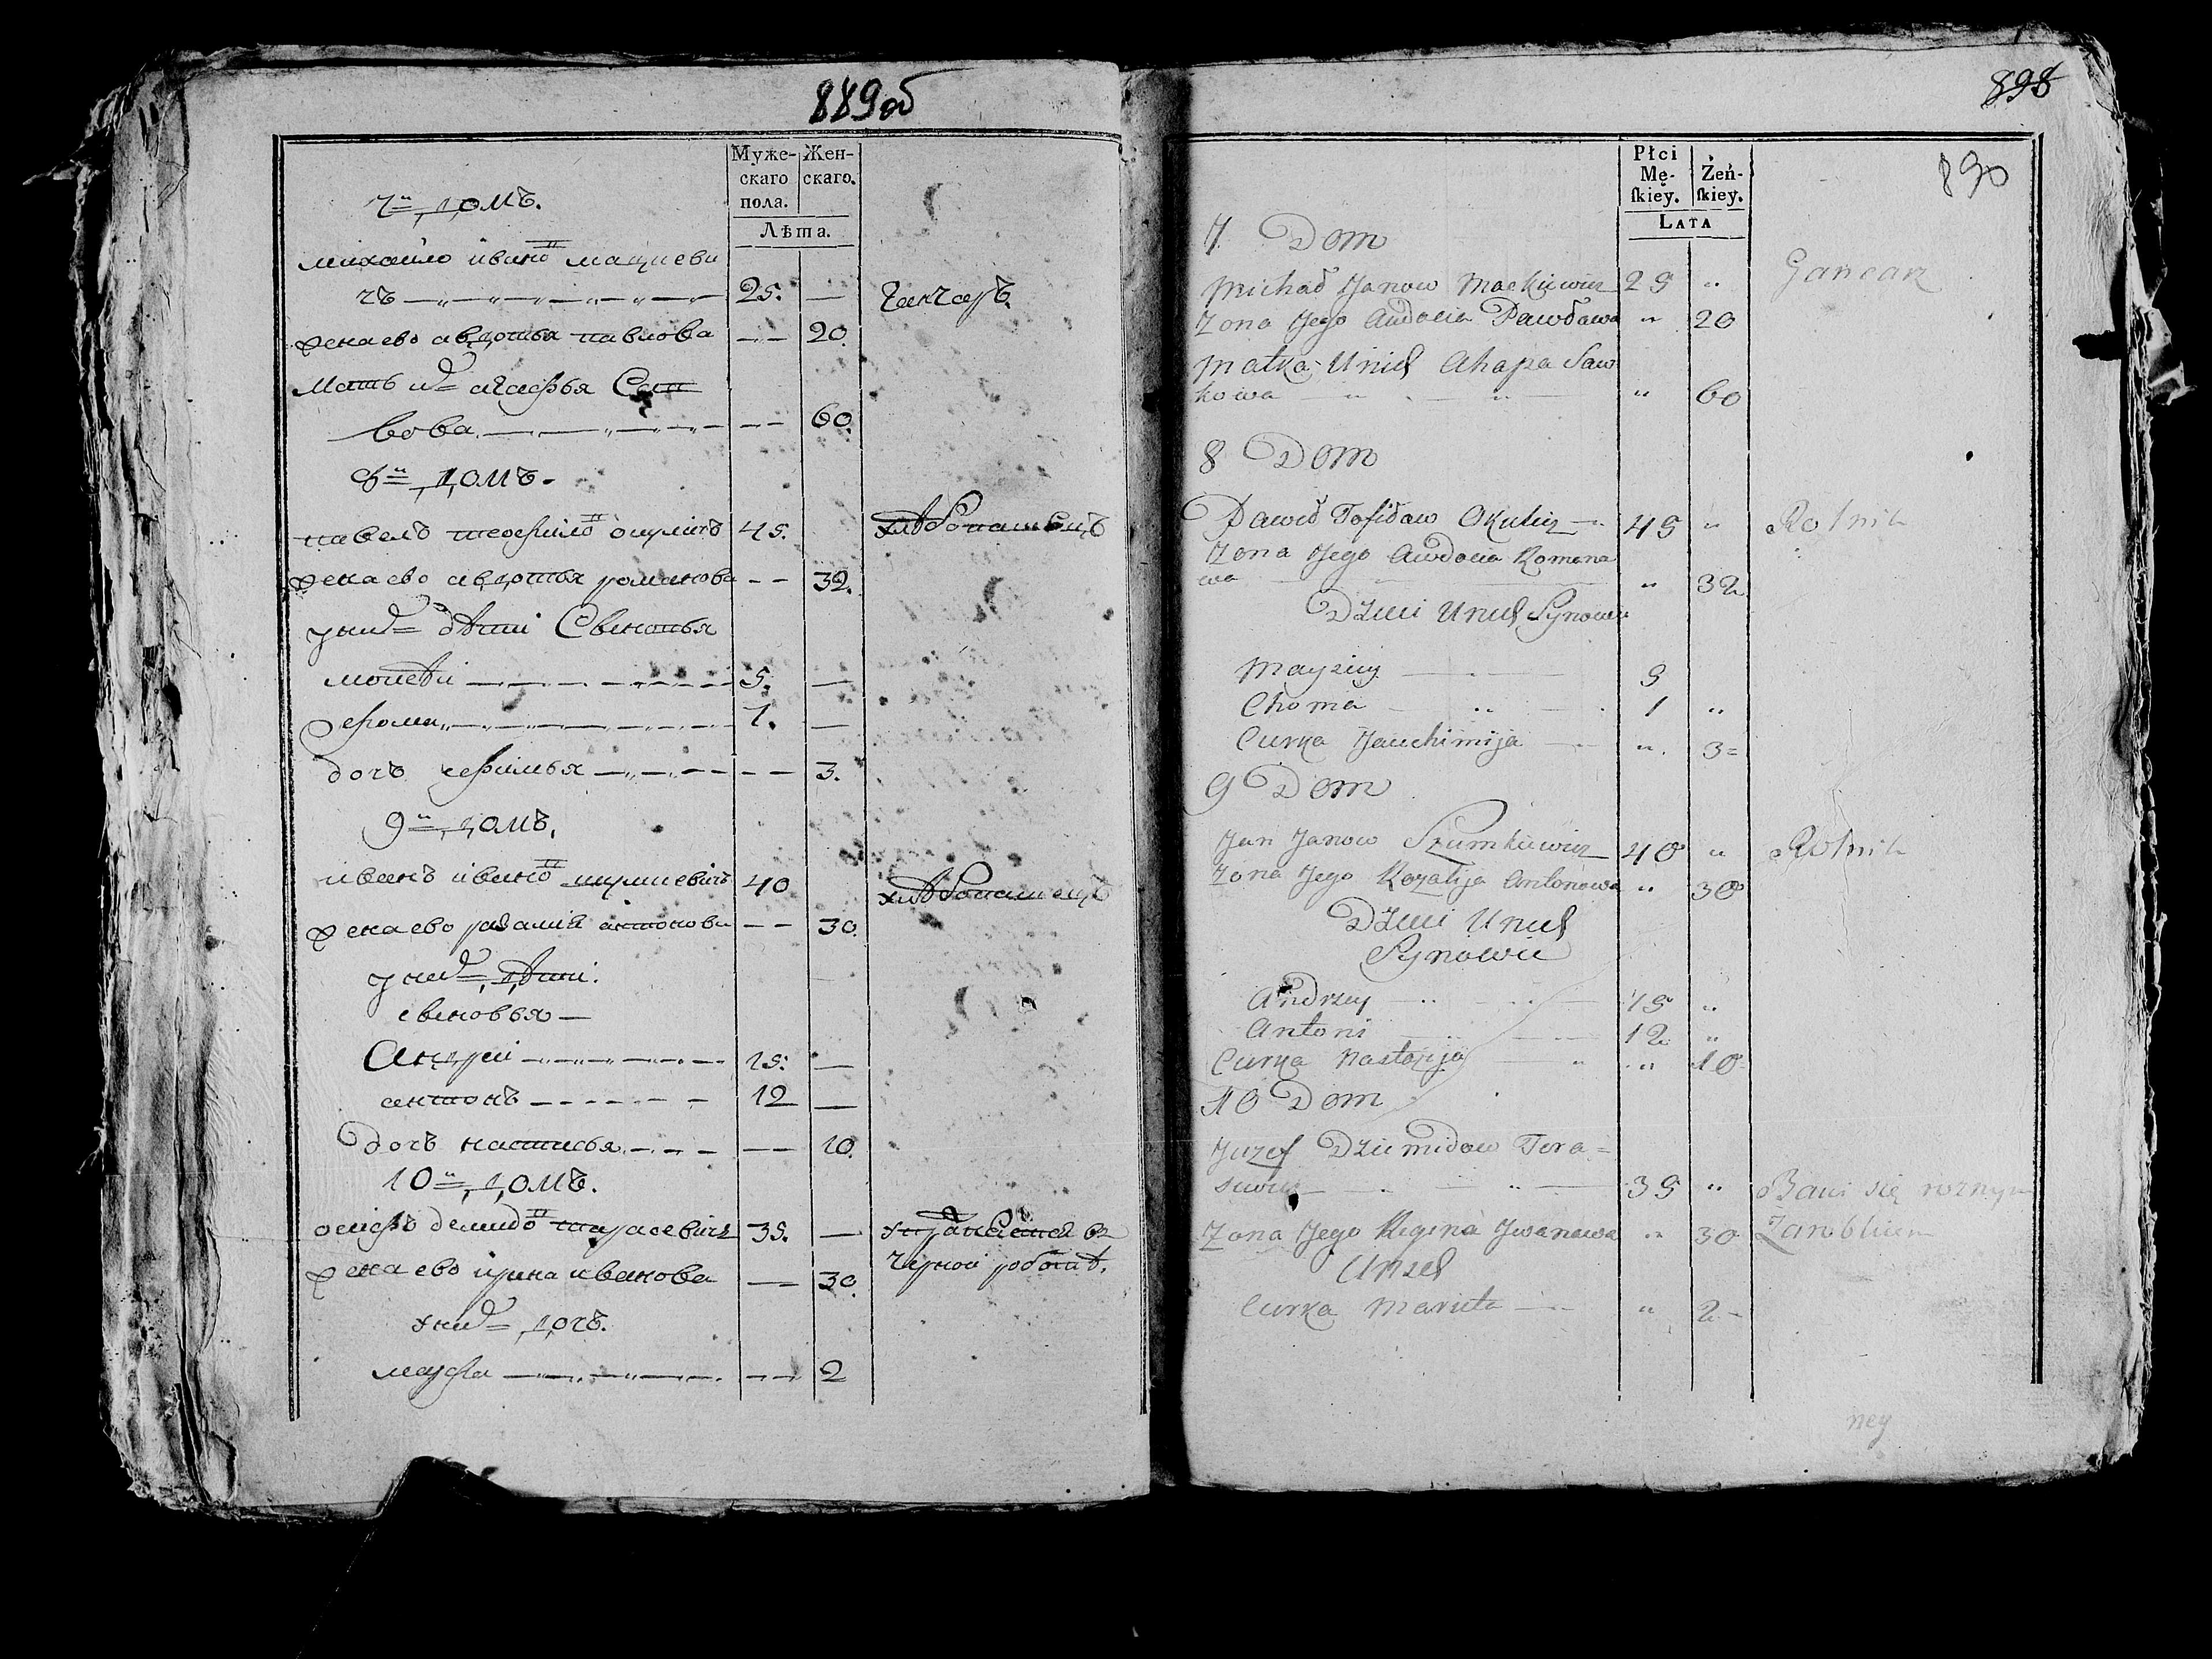 889об
Муже-
скаго
пола.
Жен-
скаго.
Лѣта.
7й домъ.
михайло иванов мацкеви
чъ 25. —
ганчаръ.
жена ево авдотья павлова — 20.
мать их агафья Сав
кова — 60.
8й домъ.
павелъ теофилов окуличъ 45.
хлѣбопашецъ
жена ево авдотья романова — 32.
у них дѣти Сыновья
мо 5. —
фома 1. —
дочь 3.
9й домъ.
иванъ иванов шушкевичъ 40
хлѣбопашецъ
жена ево розалия антонова — 30.
у них дѣти.
сыновья —
Андрей 15. —
антонъ 12 —
дочь настасья — 10.
10й домъ.
осифъ демидов тарасевичъ 35. —
упражняется в
жена ево ирина иванова — 30.
черной работѣ.
у них дочь.
марфа — 2
898
890
Płci
Mę-
ſkiey.
Żeń-
ſkiey.
LATA
7. Dom
Michał Janow Mackiewicz 25 "
Gancarz
Zona Jego Audocia Pawłowa " 20
Matka Unich Ahapa Saw
kowa " 60
8 Dom
Paweł Tofiław Okulicz 45 "
Rolnik
Zona Jego Awdocia Romano
wa " 32
Dzieci Unich Synowie
Mayziey 5
Choma 1 "
Curka Jauchimija " 3
9 Dom
Jan Janow Szumkiewicz 40 "
Rolnik
Zona Jego Rozalija Antonowa " 30
Dzieci Unich
Synowie
Andrzey 15 "
Antoni 12 "
Curka Nastazija " 10
10 Dom
Juzef Dziemidow Tora-
siewicz 35 "
Bawi się roznym
Zona Jego Regina Jwanowa " 30
Zarobkiem
Unich
Curka Maruta " 2
ney